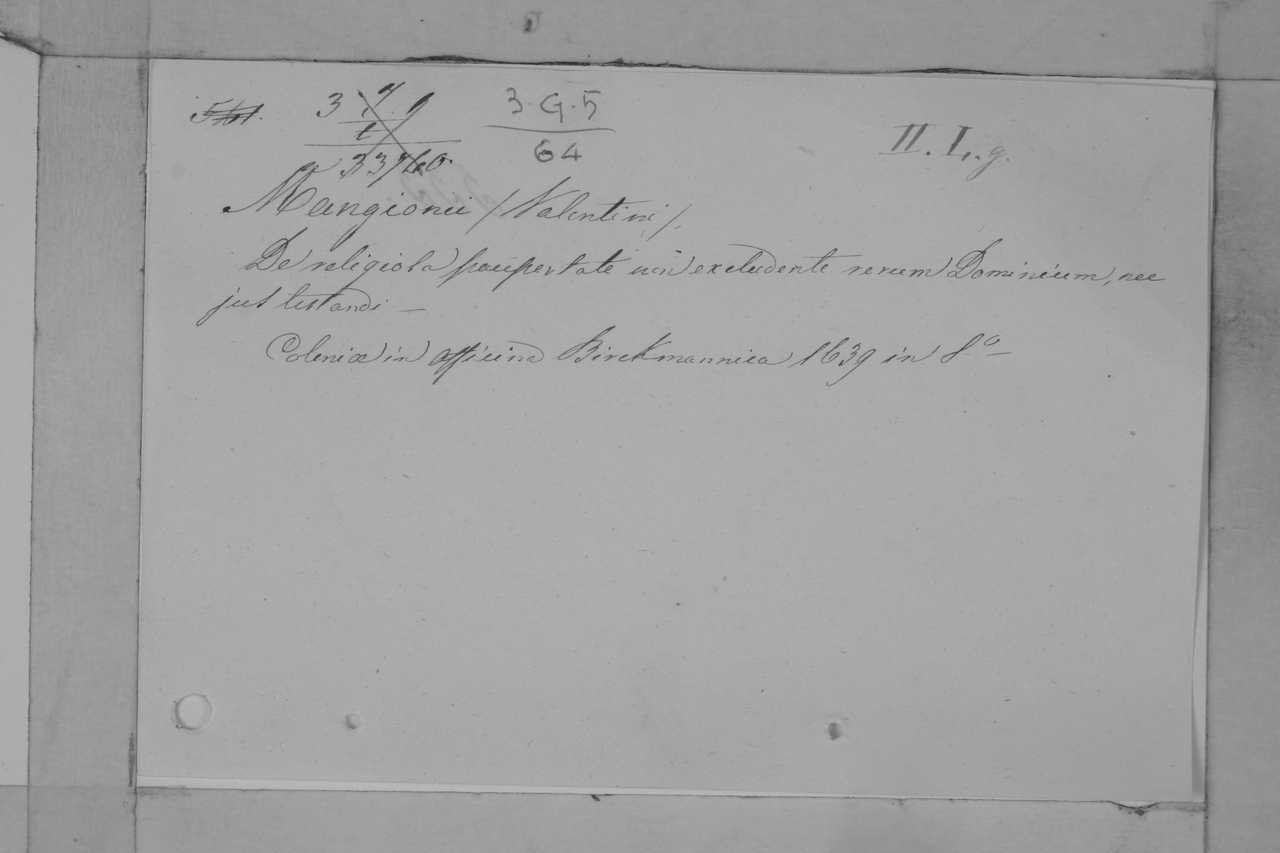 3·G·5
64
II. L. g.
Mangionii (Valentini).
De religiosa paupertate non excludente rerum Dominium, nec
jus testandi —
Coloniæ in officina Birckmannica 1639 in 8º —